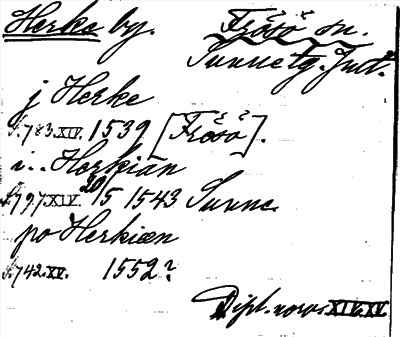 Herke by. Frösö sn.
Sunne tg. Jmtl.
j Herke
S. 783. XIV. 1539 [Frösö].
i.. Herkiän
S. 797. XIV. 20/5 1543 Sunne.
po Herkiæn
S. 742. XV. 1552?
Dipl. norv. XIV. XV.